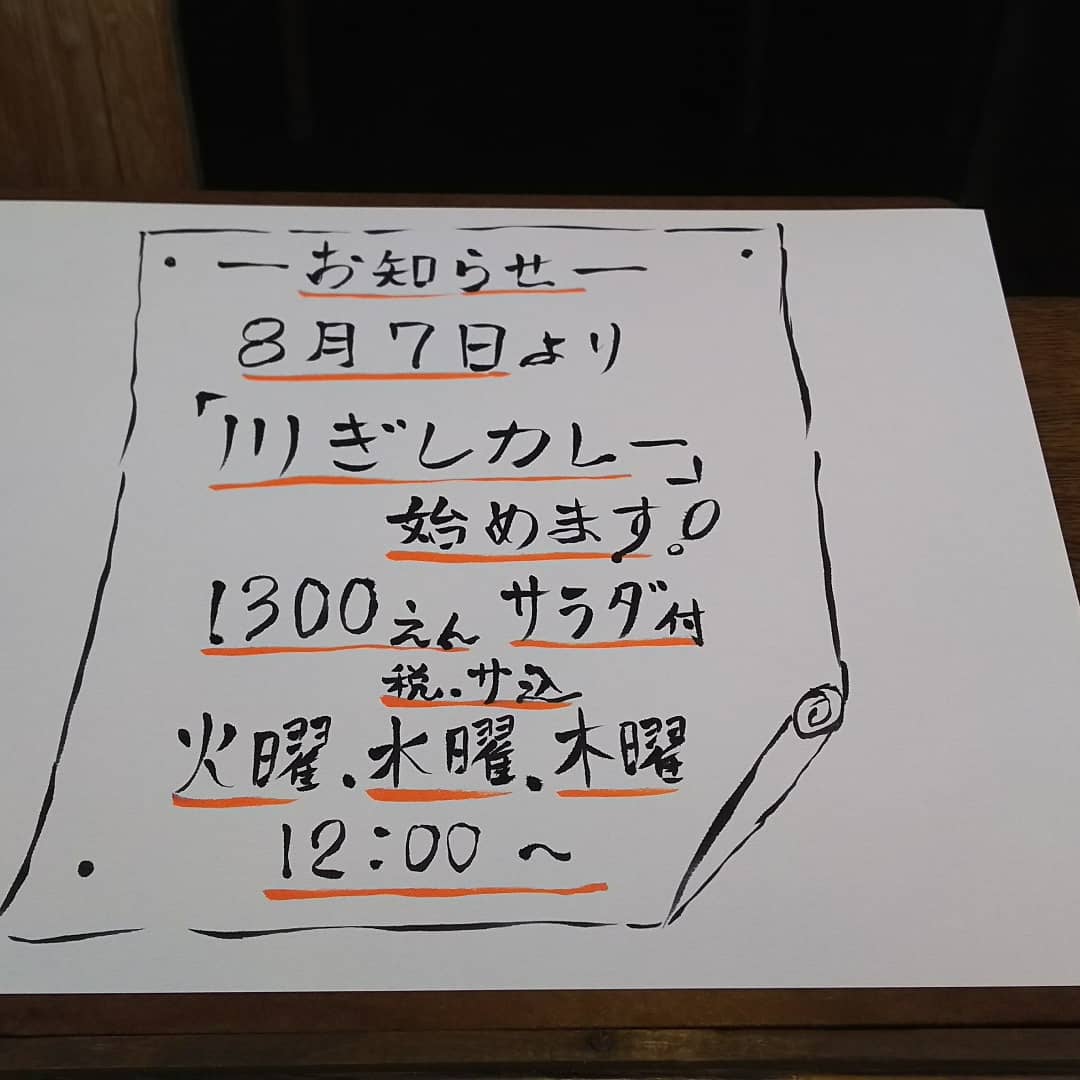 ーお知らせー
8月7日より
「川ぎしカレー」
始めます。!
1300えん サラダ付
税.サ込
火曜.水曜.木曜
12:00〜